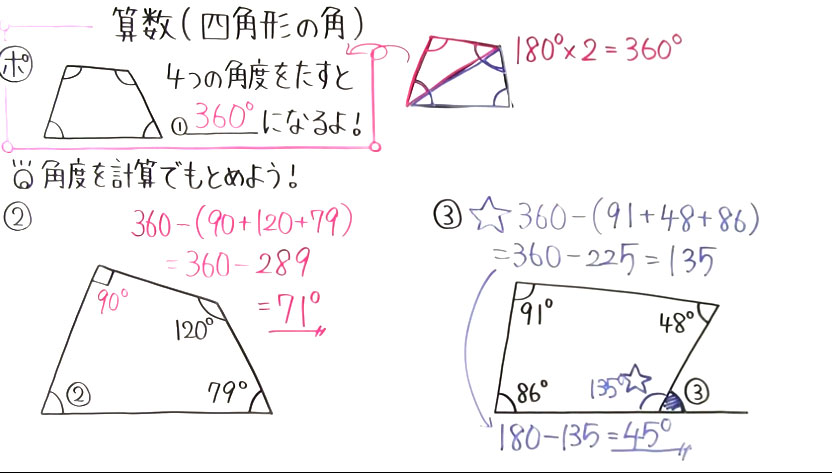 算数(四角形の角)
ポ
4つの角度をたすと
① 360°になるよ!
180°×2=360°
角度を計算でもとめよう!
②
360-(90+120+79)
=360-289
=71°
90°
120°
79°
②
③ ☆ 360-(91+48+86)
=360-225=135
91°
48°
86°
135°☆
③
180-135=45°